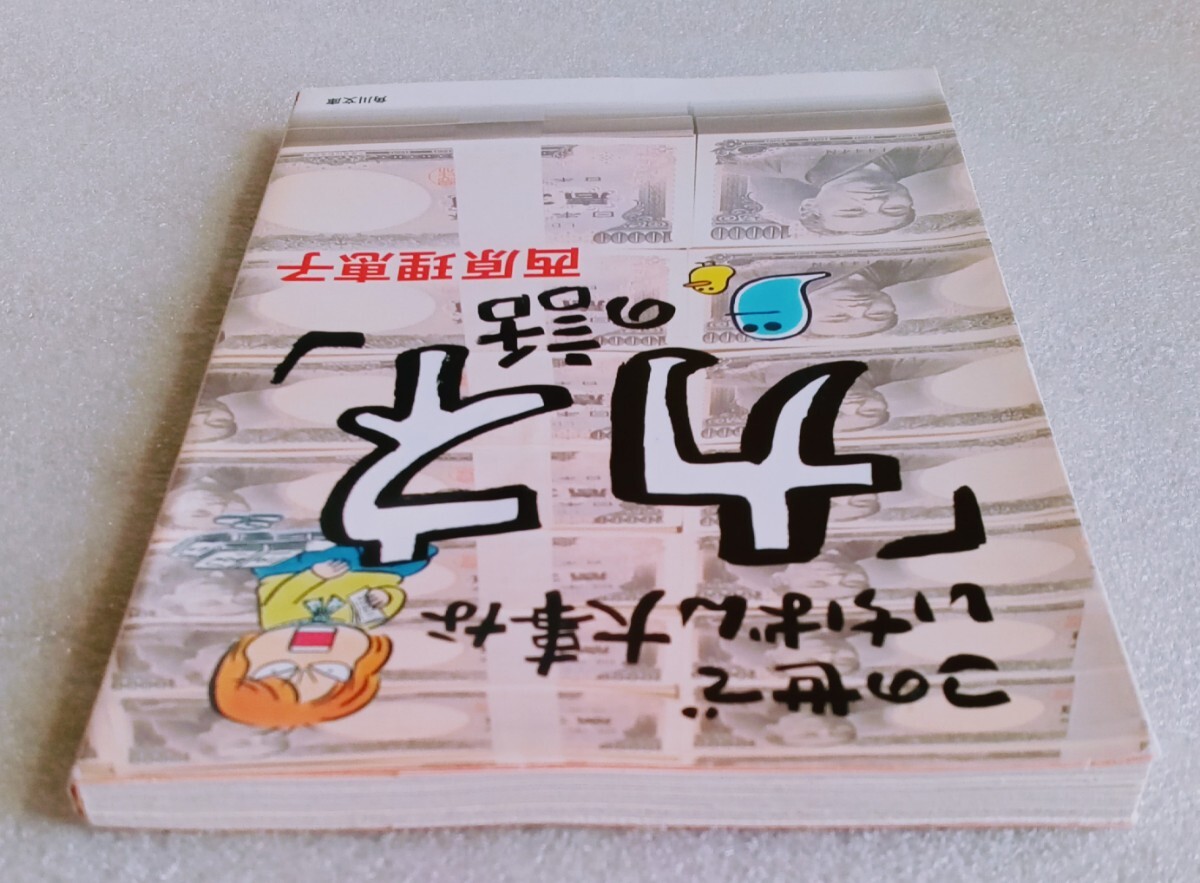 この世で
いちばん大事な
「カネ」
の話
西原理恵子
角川文庫
10000
10000
10000
10000